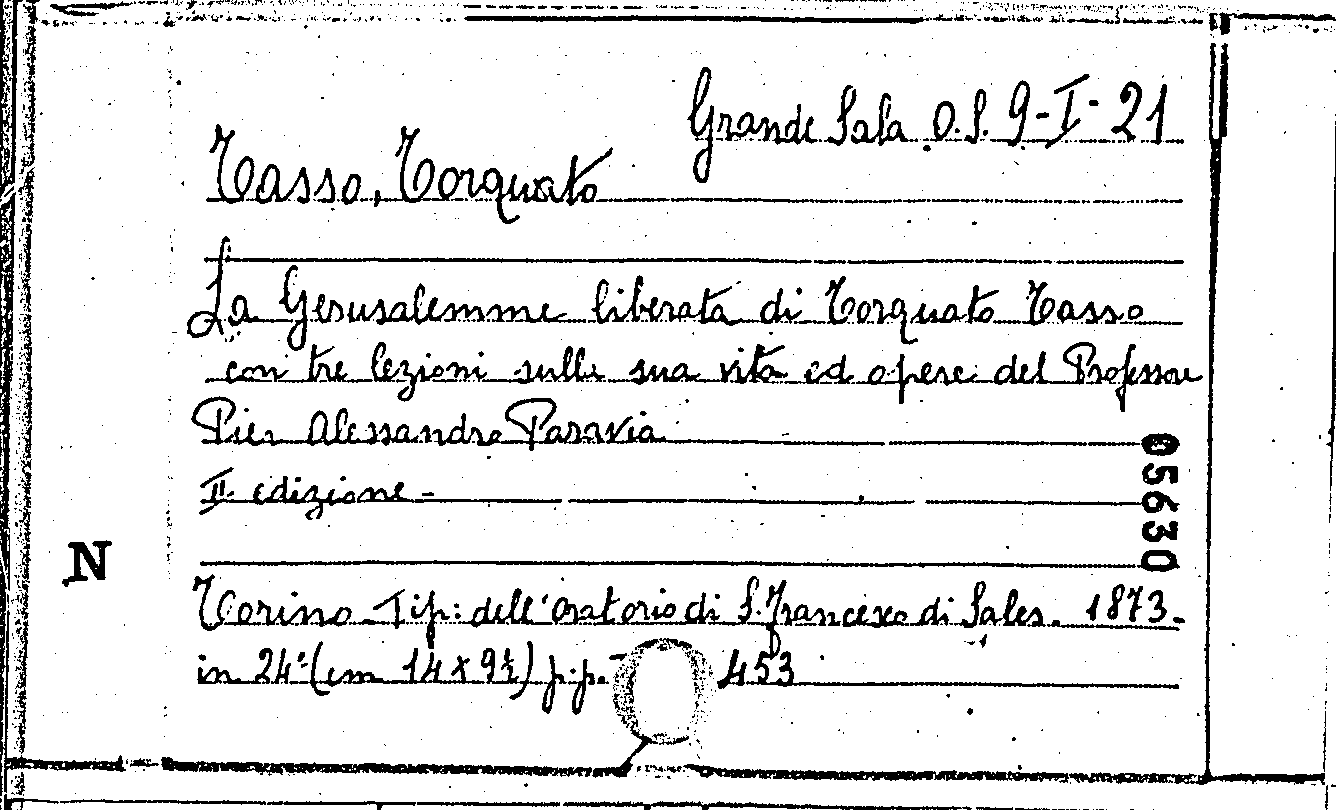 Grande Sala O.S. 9-I-21
Tasso, Torquato
La Gerusalemme liberata di Torquato Tasso
con tre lezioni sulla sua vita ed opere del Professore
Pier Alessandro Paravia
II edizione -
05630
N
Torino - Tip: dell'Oratorio di S. Francesco di Sales. 1873.
in 24° (cm 14 x 9½) p.p. 453